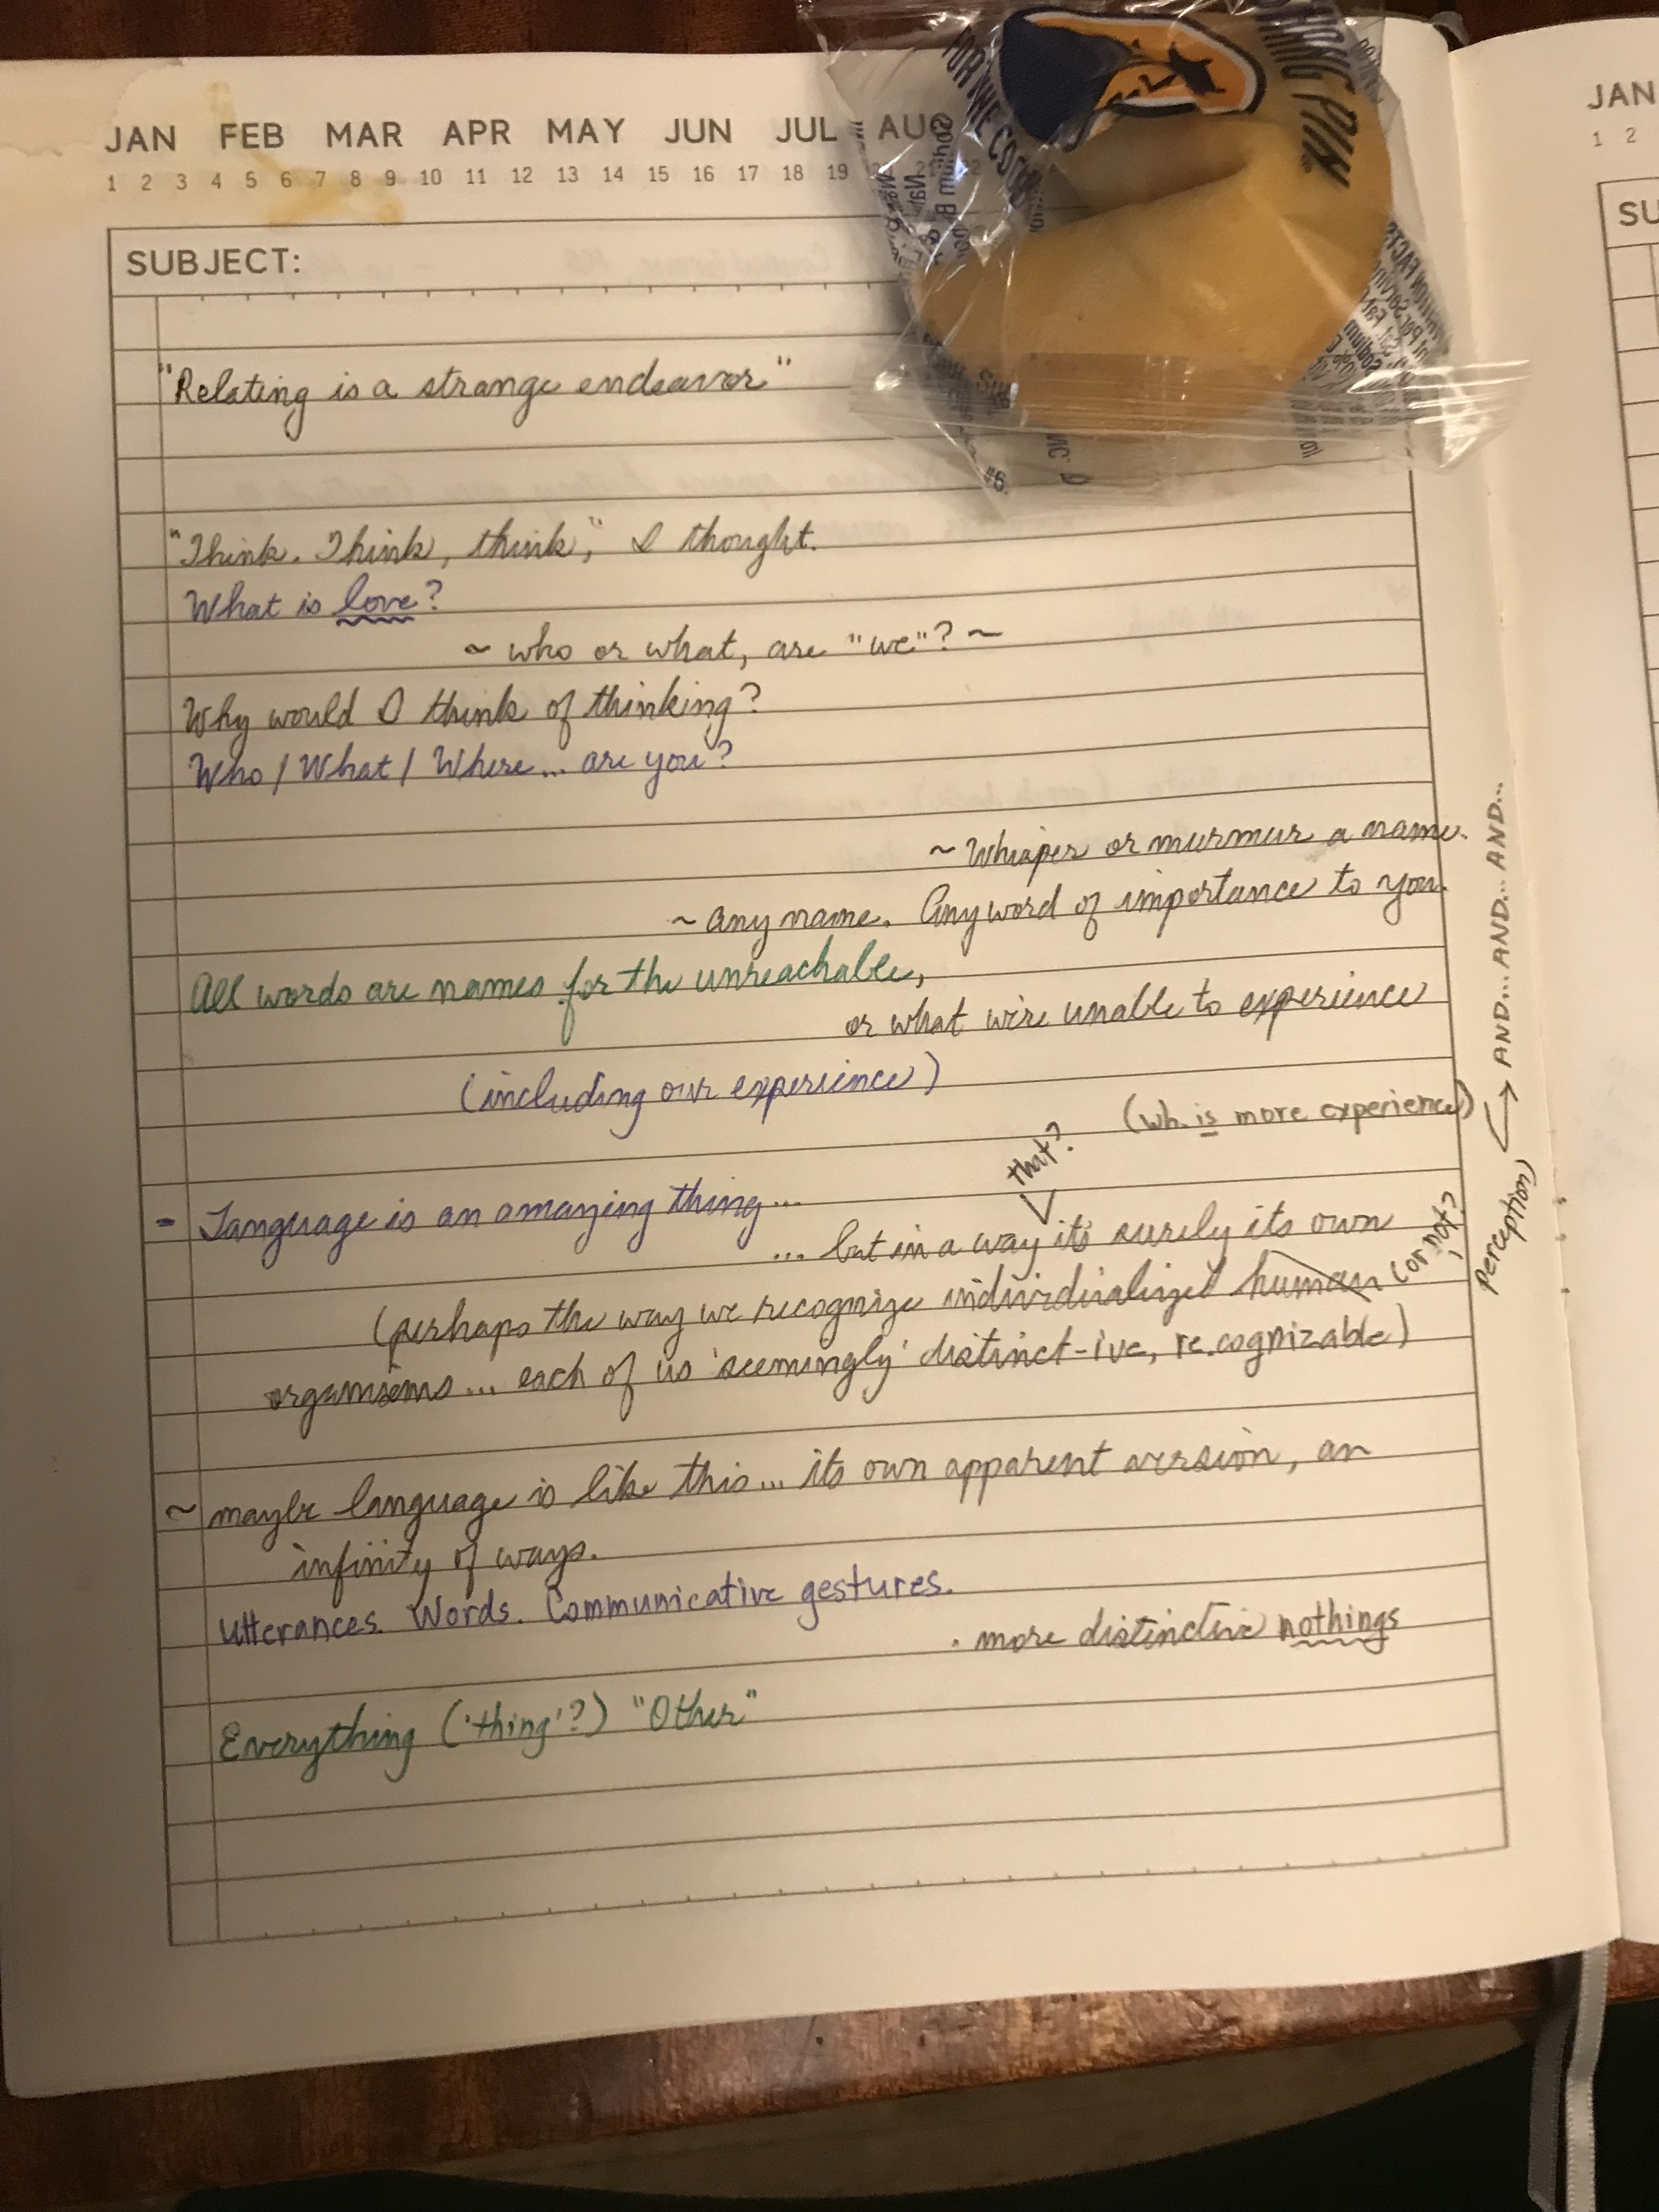 JAN FEB MAR APR MAY JUN JUL AUG
1 2 3 4 5 6 7 8 9 10 11 12 13 14 15 16 17 18 19
SUBJECT:
"Relating is a strange endeavor"
"Think. Think, think," I thought.
What is love?
~ who or what, are "we"? ~
Why would I think of thinking?
Who / What / Where... are you?
~ Whisper or murmur a name.
~ any name. Any word of importance to you.
All words are names for the unreachable,
or what we're unable to experience
(including our experience)
(wh. is more experience)
that?
- Language is an amazing thing...
... but in a way it's surely its own
(perhaps the way we recognize individualized human (or not?)
organisms... each of us 'seemingly' distinct-ive, re.cognizable)
~ maybe language is like this... its own apparent version, an
infinity of ways.
Utterances. Words. Communicative gestures.
. more distinctive nothings
Everything ('thing'?) "Other"
Perception) → AND... AND... AND... AND...
JAN
1 2
SU
#6